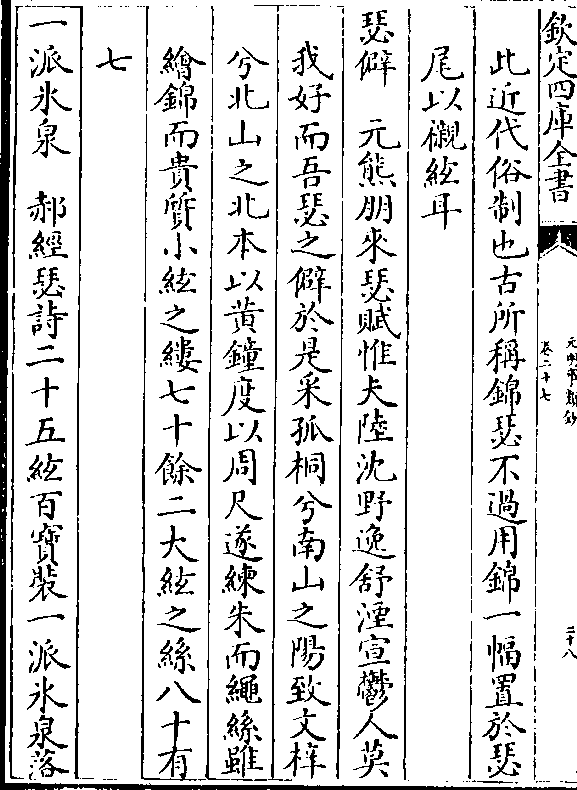 欽定四庫全書
元明事類鈔
卷二十七
二十八
此近代俗制也古所稱錦瑟不過用錦一幅置於瑟
尾以襯絃耳
瑟僻　元熊朋來瑟賦惟夫陸沈野逸舒湮宣鬱人莫
我好而吾瑟之僻於是采孤桐兮南山之陽致文梓
兮北山之北本以黄鐘度以周尺遂練朱而繩絲雖
繪錦而貴質小絃之縷七十餘二大絃之絲八十有
七
一派氷泉　郝經瑟詩二十五絃百寶裝一派氷泉落